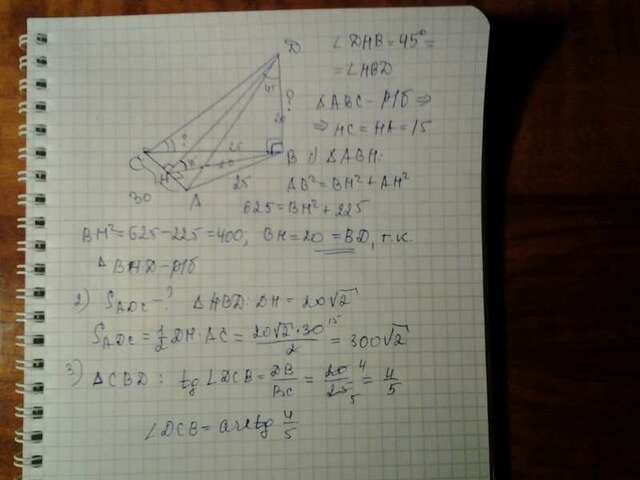 ∠DHB = 45° =
= ∠HBD
△ABC – р/б ⇒
⇒ HC = HA = 15
D
45
?
20
C
H
A
B
?
25
20
25
30
1) △ABH:
AB² = BH² + AH²
625 = BH² + 225
BH² = 625 – 225 = 400; BH = 20 = BD, т.к.
△BHD – р/б
2) S_ADC – ? △HBD: DH = 20√2
S_ADC = 1/2 DH · AC = 20√2 · 30 15 / 2 = 300√2
3) △CBD : tg ∠DCB = DB/BC = 20 4 / 25 5 = 4/5
∠DCB = arctg 4/5